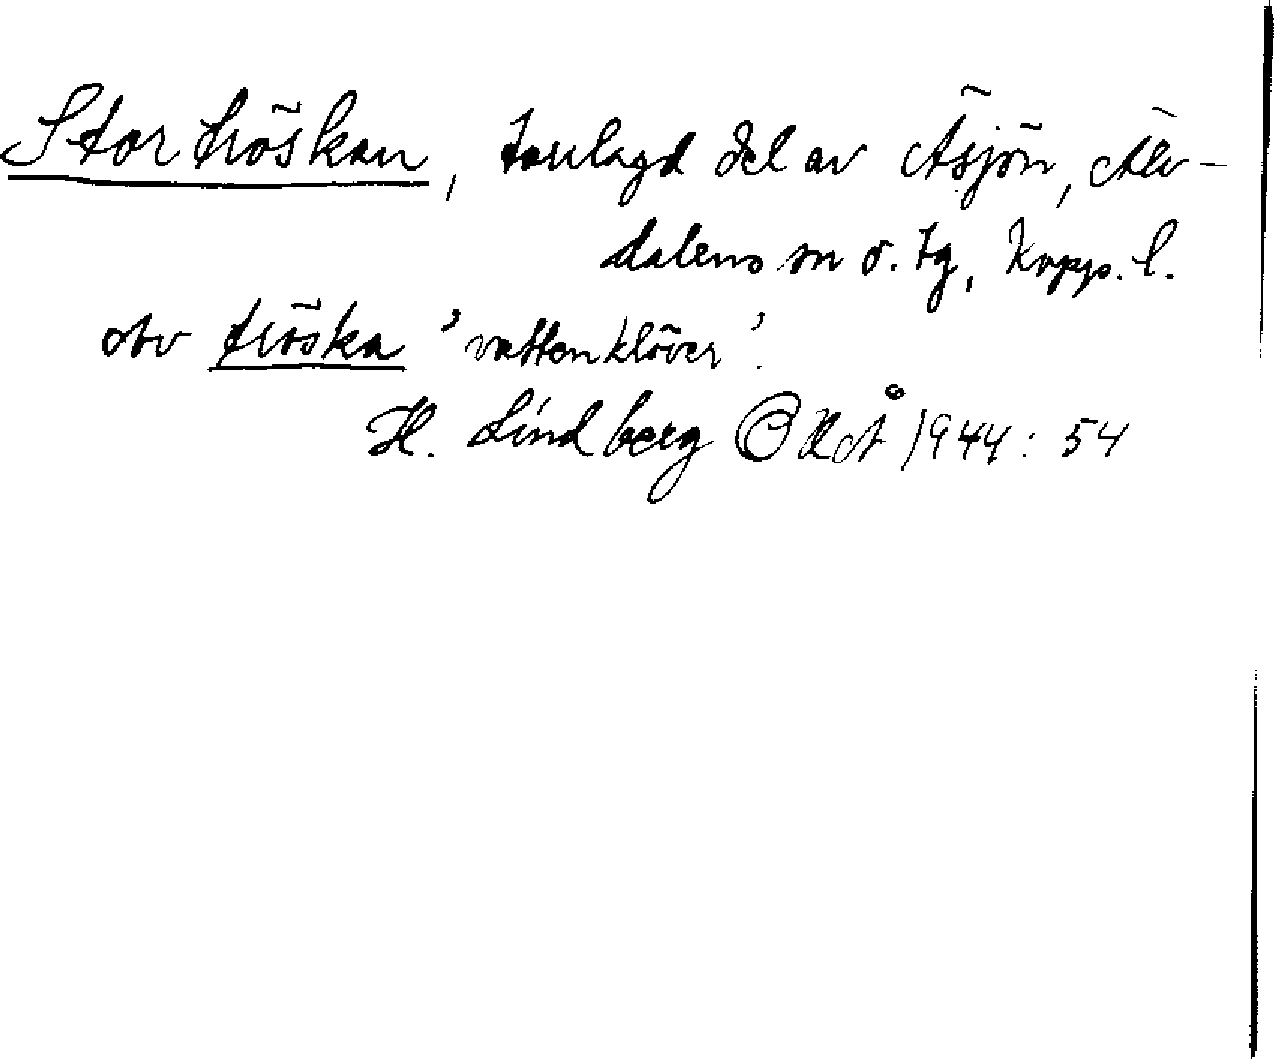 Stortröskan, torrlagd del av Äsjön, Älv-
dalens sn o. tg, Kopp. l.
av tröska 'vattenklöver'.
H. Lindberg OUÅ 1944: 54